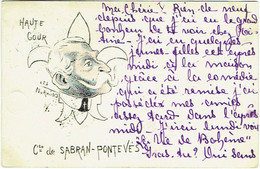 HAUTE
COUR
Cte de SABRAN-PONTEVÈS
ma chérie! Rien de neuf
depuis que j'ai eu le grand
bonheur de te voir chez
J'ai eu quelques
jeunes filles cet après
midi à la maison
grâce à la comédie
qui a été remise j'ai
posséder mes amies
tard dans l'après
midi J'irai lundi voir
"La Vie de Bohème"
Iras-tu? Qui sans